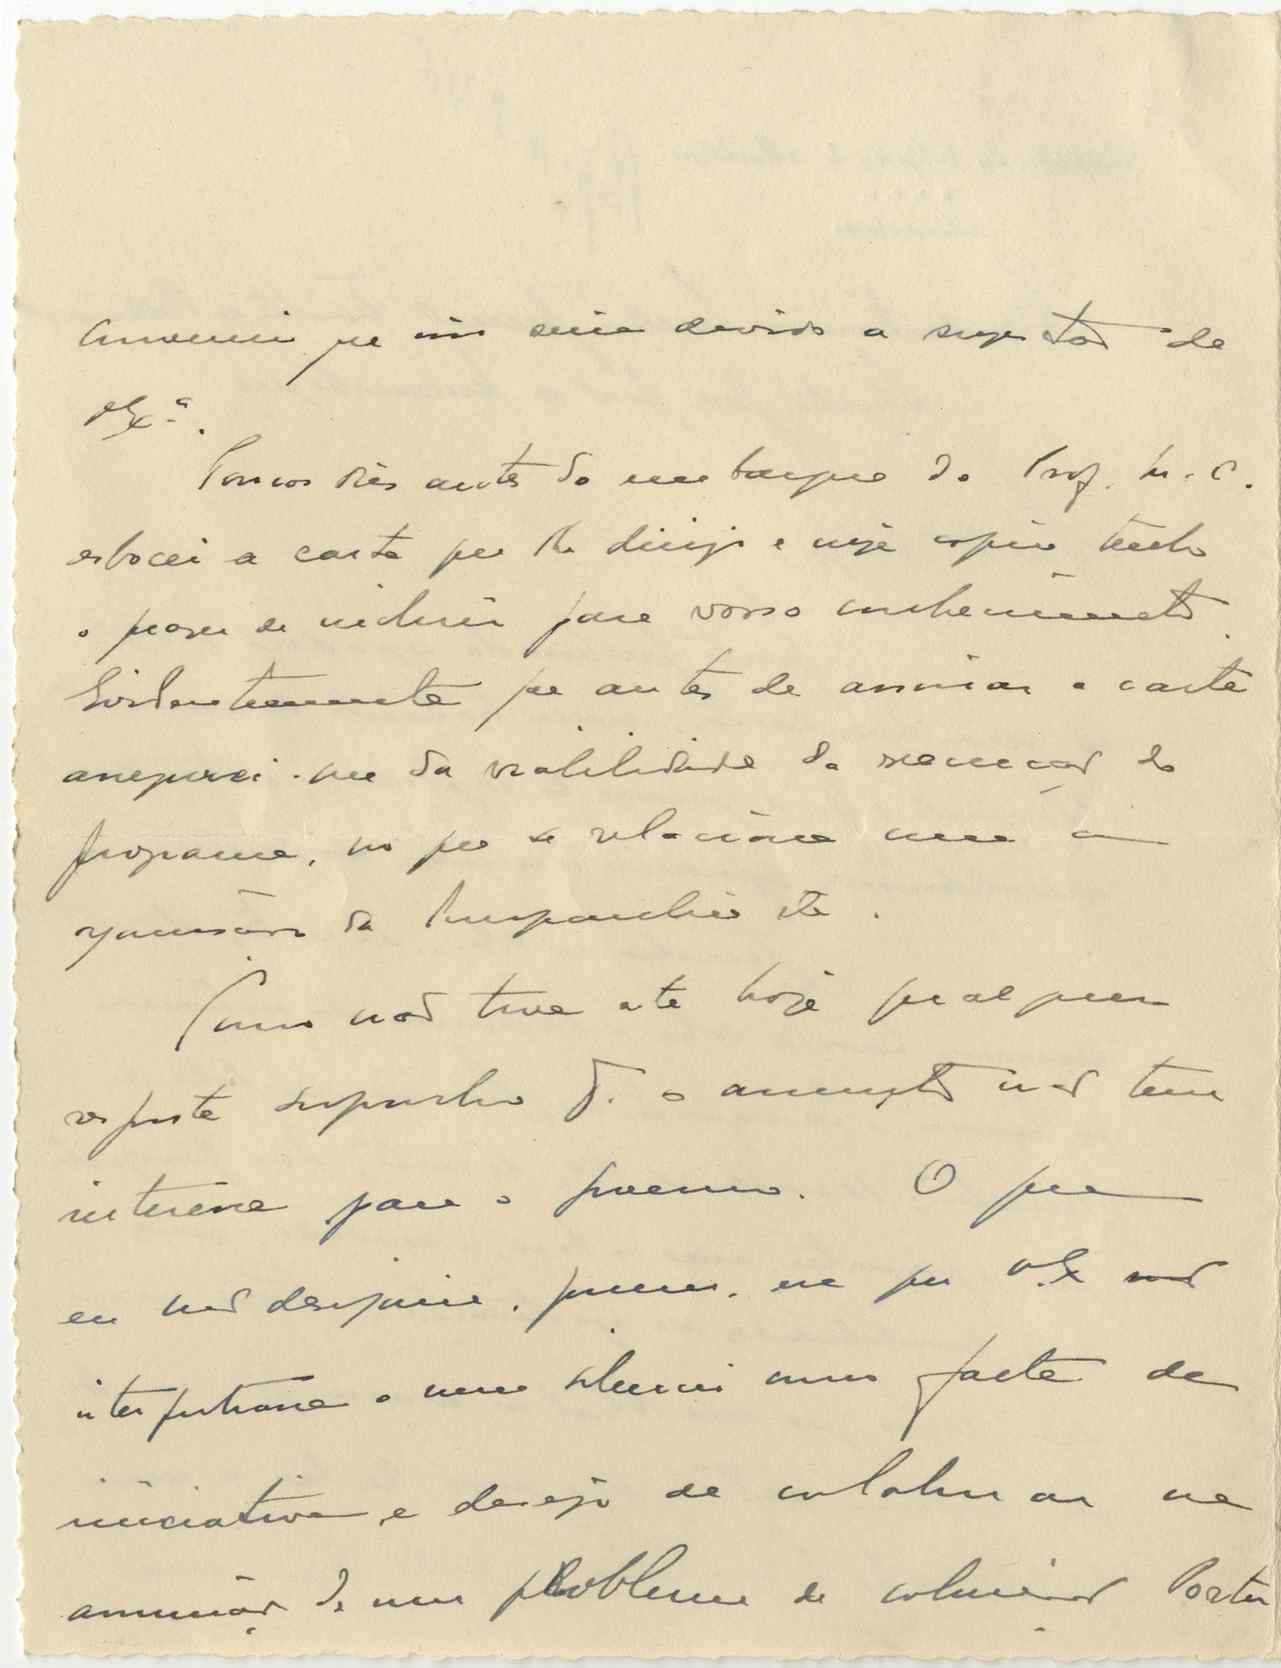 que não seria devido a sugestão de
V. Exª.
Poucos dias antes do embarque do Prof. M. C.
esbocei a carta que lhe dirigi e cuja copia tenho
o prazer de incluir para vosso conhecimento.
que antes de assinar a carta
assegurei-me da viabilidade da do
programa, no que se relaciona com a
da Companhia etc.
Como não tive até hoje qualquer
resposta suponho q. o assunto não tem
interesse para o governo. O que
eu não desejaria, porem, era que V. Ex não
interpretasse o meu silencio como falta de
iniciativa e desejo de colaborar na
de um problema de colonização Portu